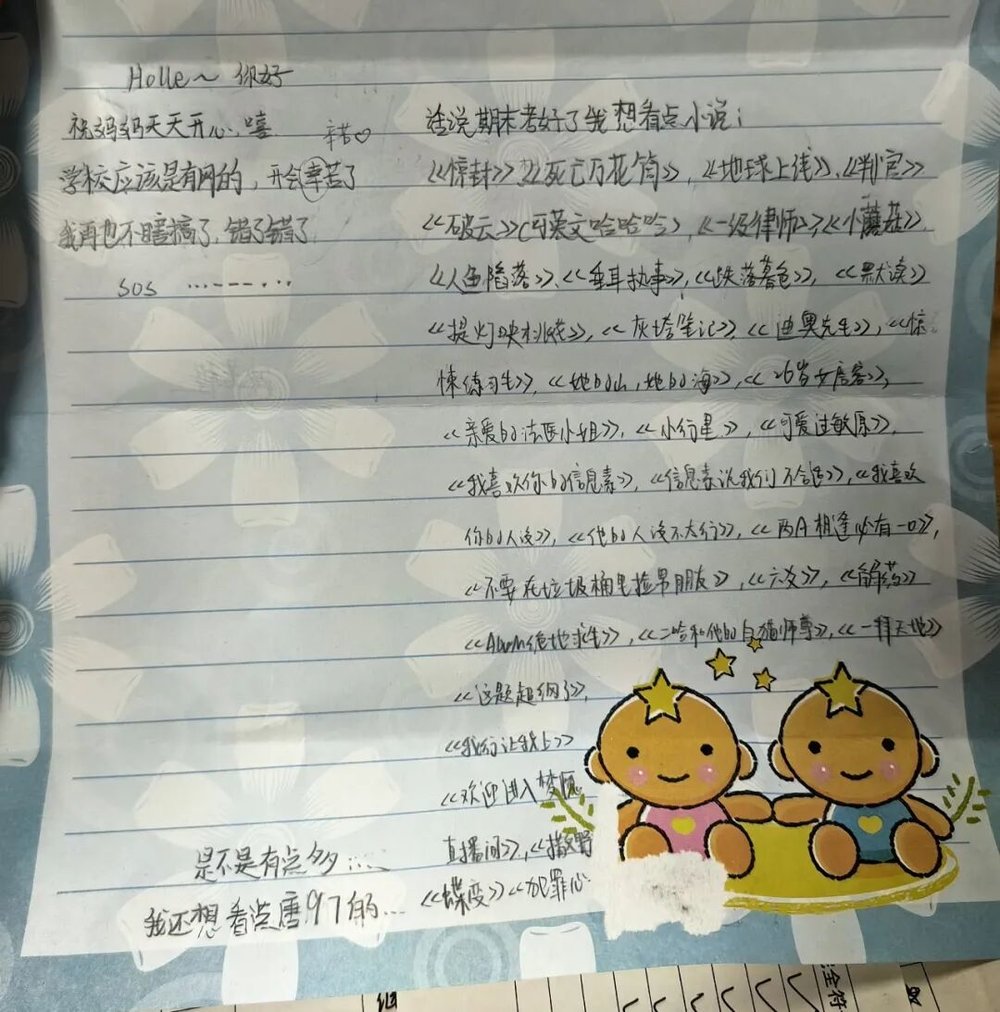 Holle~ 你好
祝妈妈天天开心,嘻
辛苦♡
学校应该是有网的,开会辛苦了
我再也不瞎搞了,错了错了
SOS ...---...
话说期末考好了我想看点小说:
《惊封》,《死亡万花筒》,《地球上线》,《判官》
《破云》(可英文哈哈哈),《一级律师》,《小蘑菇》,
《人鱼陷落》,《垂耳执事》,《跌落暮色》,《默读》
《提灯映桃花》,《灰塔笔记》,《迪奥先生》,《惊
悚练习生》,《她的山,她的海》,《26岁女房客》,
《亲爱的法医小姐》,《小行星》,《可爱过敏原》,
《我喜欢你的信息素》,《信息素说我们不合适》,《我喜欢
你的人设》,《他的人设不太行》,《两A相逢必有一O》,
《不要在垃圾桶里捡男朋友》,《六爻》,《解药》
《绝地求生》,《二哈和他的白猫师尊》,《一拜天地》
《这题超纲了》,
《我行让我上》
《欢迎进入梦魇
直播间》,《撒野
《蝶变》《犯罪心
是不是有点多....
我还想看苍唐97的...